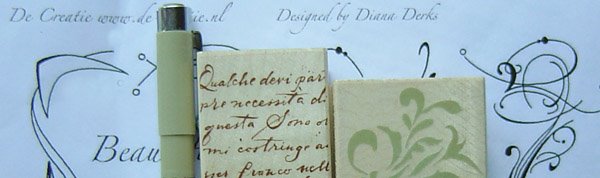 De Creatie www.de
ie.nl
Designed by Diana Derks
Qualche deri par
pre necessità di
questa Sono
mi costringe a
per franco nell
Beau